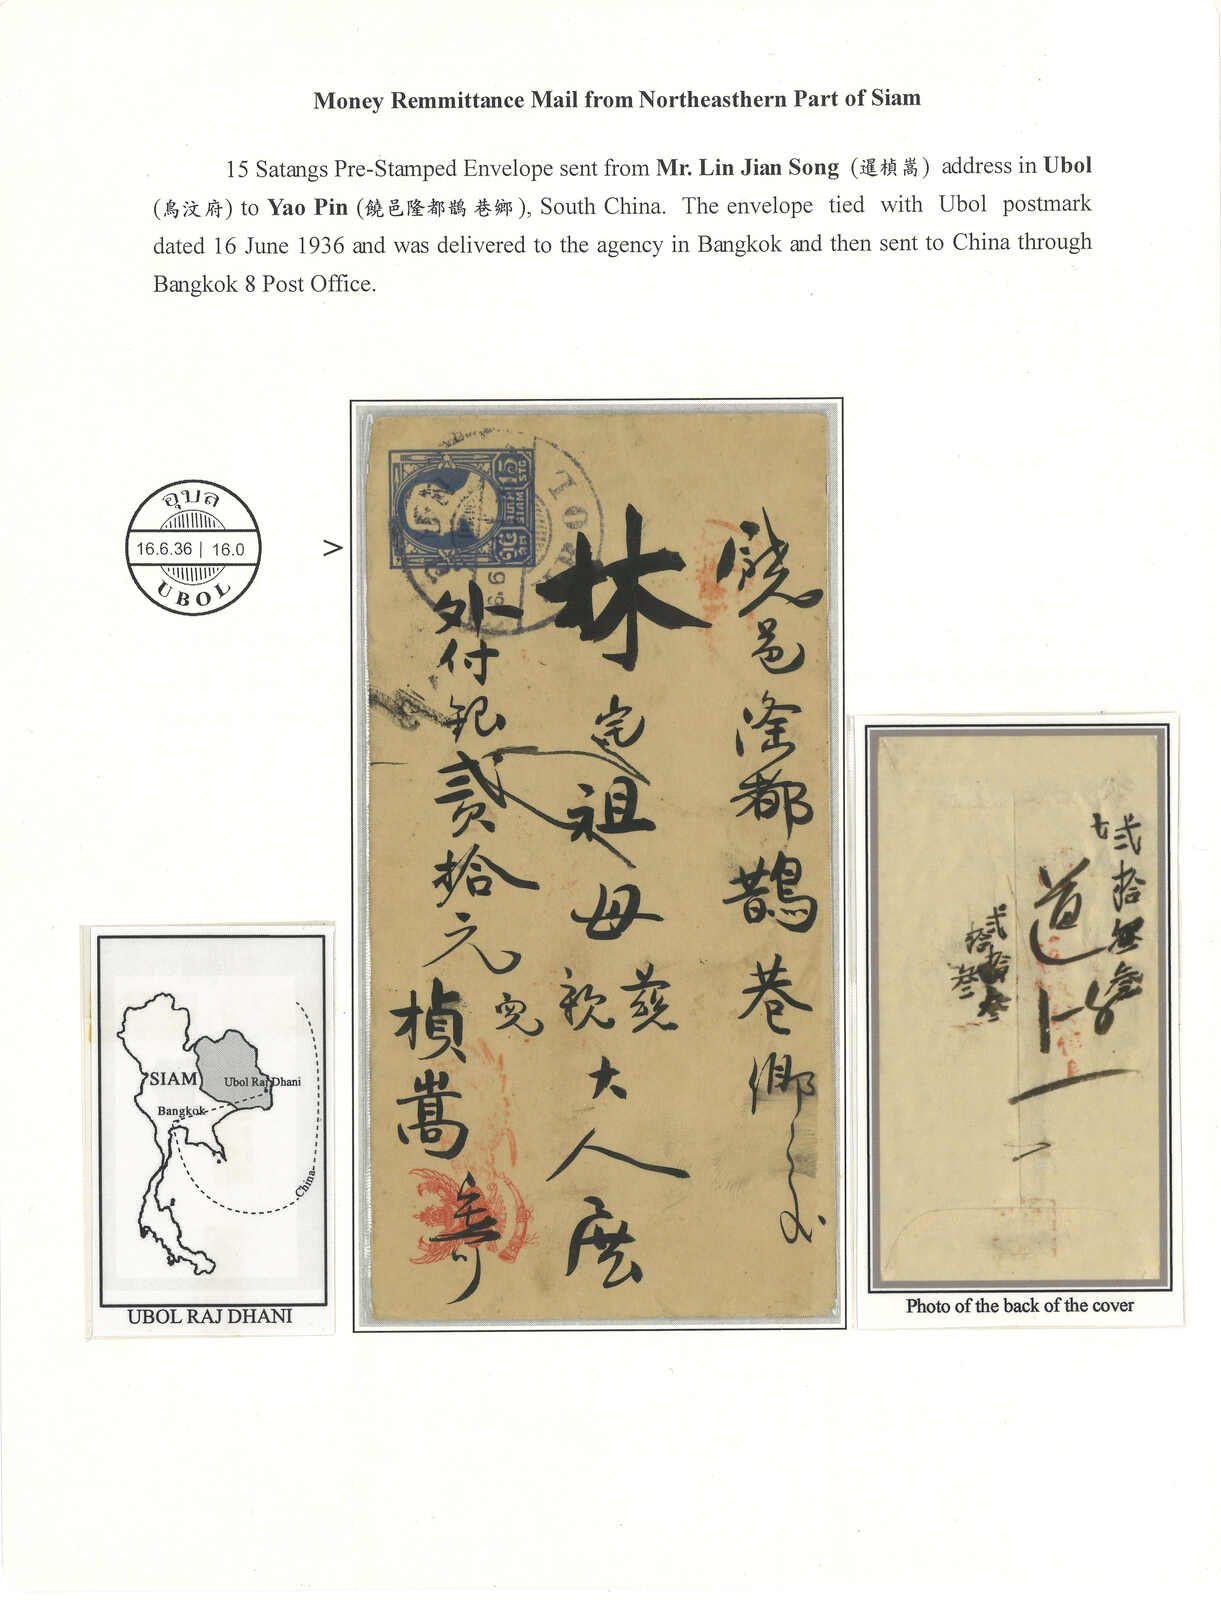 Money Remmittance Mail from Northeasthern Part of Siam
15 Satangs Pre-Stamped Envelope sent from Mr. Lin Jian Song (暹楨嵩) address in Ubol
(烏汶府) to Yao Pin (饒邑隆都鵲巷鄉), South China. The envelope tied with Ubol postmark
dated 16 June 1936 and was delivered to the agency in Bangkok and then sent to China through
Bangkok 8 Post Office.
อุบล
16.6.36 | 16.0
UBOL
>
15
STG
SIAM
饒邑隆都鵲巷鄉
林
祖母
慈
親大人
外付銀貳拾元
楨嵩寄
SIAM
Ubol Raj Dhani
Bangkok
China
UBOL RAJ DHANI
貳拾叁
道
Photo of the back of the cover